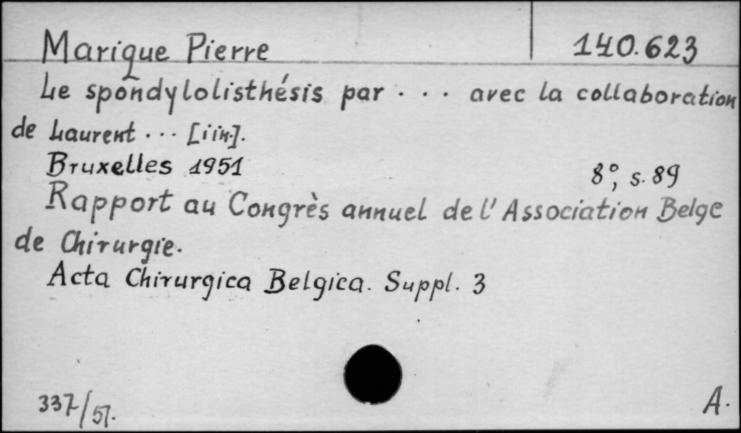 Marique Pierre 140.623
Le spondylolisthésis par . . . avec la collaboration
de Laurent . . . [i in.].
Bruxelles 1951 8°, s. 89
Rapport au Congrès annuel de l'Association Belge
de Chirurgie.
Acta Chirurgica Belgica. Suppl. 3
337/57. A.